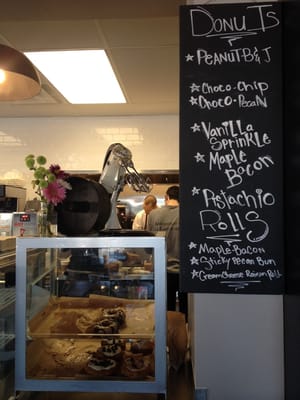 DONUTS
PEANUT B & J
CHOCO-CHIP
CHOCO-PECAN
VANILLA
SPRINKLE
MAPLE
BACON
PISTACHIO
ROLLS
MAPLE-BACON
STICKY PECAN BUN
CREAM CHEESE RAISIN ROLL